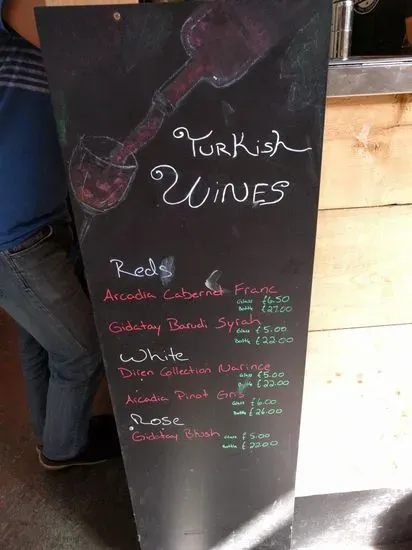 Turkish
Wines
Reds
Arcadia Cabernet Franc
Glass £6.50
Bottle £27.00
Gidatay Barudi Syrah
Glass £5.00
Bottle £22.00
White
Diren Collection Narince
Glass £5.00
Bottle £22.00
Arcadia Pinot Gris
Glass £6.00
Bottle £26.00
Rose
Gidatay Blush Glass £5.00
Bottle £22.00